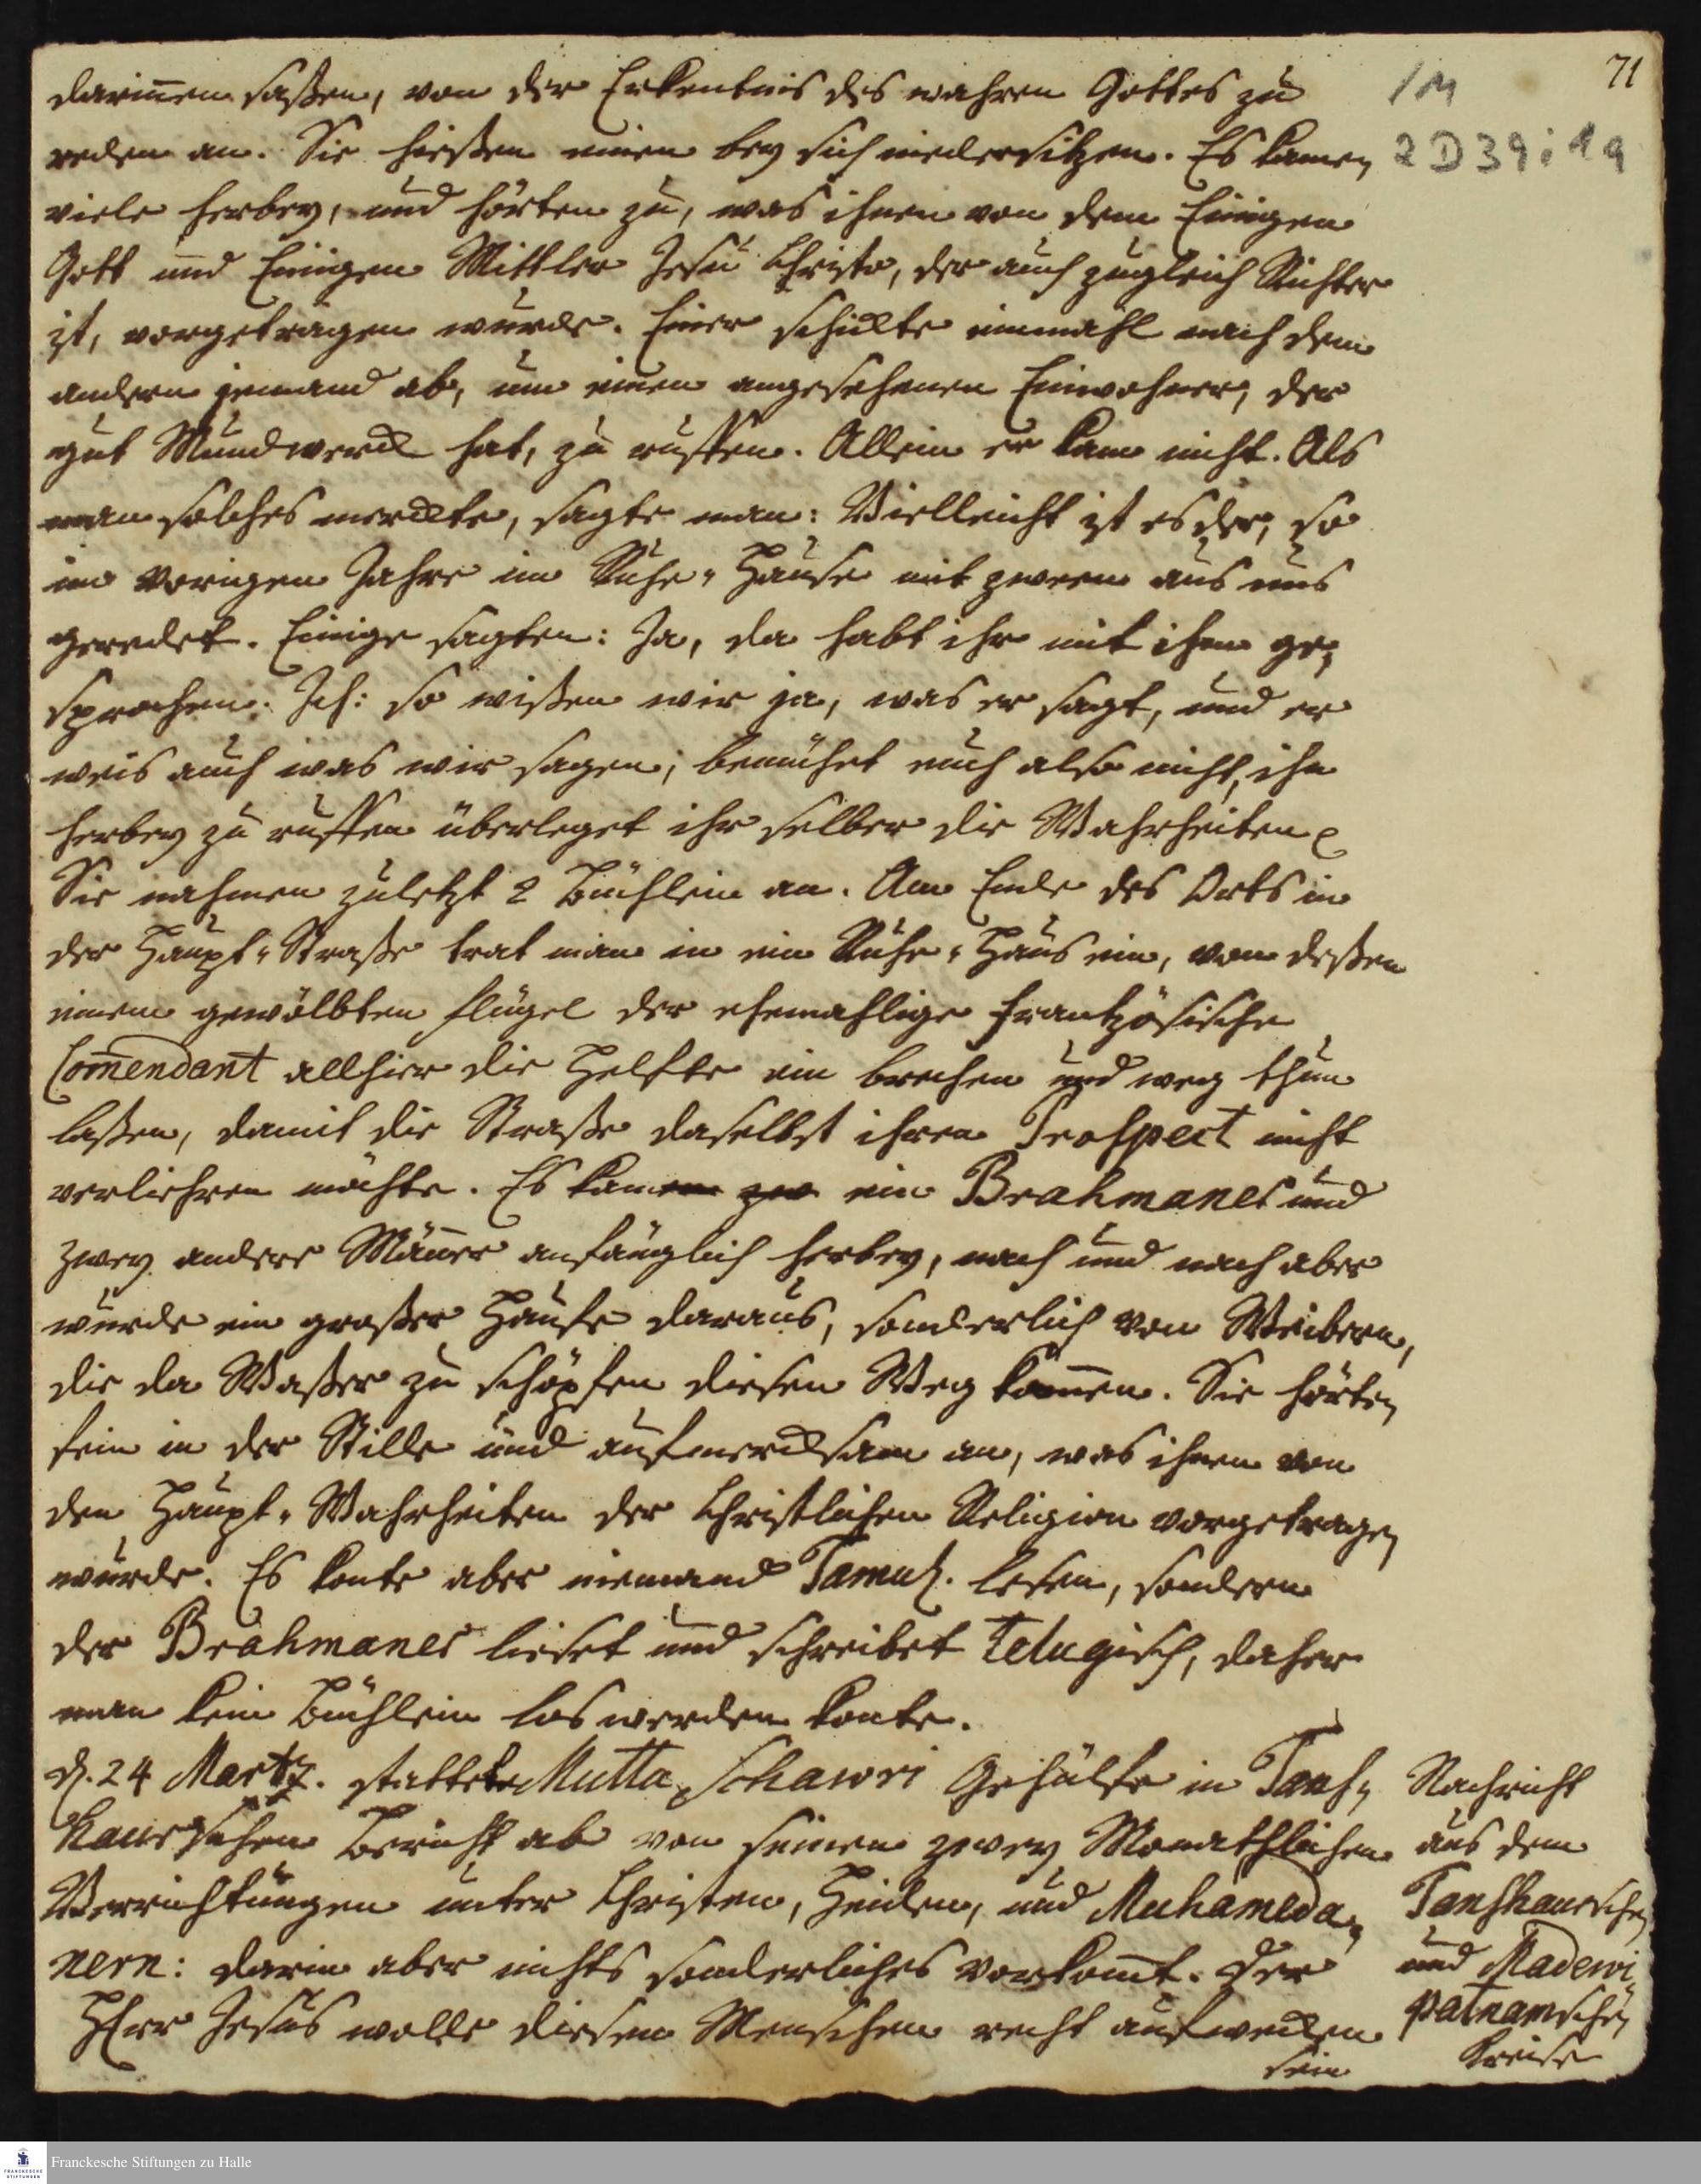 71
1M
2D39:19
darinnen saßen, von der Erkentnis des wahren Gottes zu
reden an. Sie hießen einen bey sich niedersitzen. Es kamen
viele herbey, und hörten zu, was ihnen von dem Einigen
Gott und Einigen Mittler Jesu Christo, der auch zugleich Richter
ist, vorgetragen wurde. Einer schickte einmahl nach dem
andern jemand ab, um einen angesehenen Einwohner, der
gut Mundwerck hat, zu ruffen. Allein er kam nicht. Als
man solches merckte, sagte man: Vielleicht ist es der, so
im vorigen Jahre im Ruhe-Hause mit zween aus uns
geredet. Einige sagten: Ja, da habt ihr mit ihm ge-
sprochen. Ich: so wißen wir ja, was er sagt, und er
weis auch was wir sagen; bemühet euch also nicht, ihn
herbey zu ruffen überleget ihr selber die Wahrheiten
Sie nahmen zuletzt 2 Büchlein an. Am Ende des Orts in
der Haupt-Straße trat man in ein Ruhe-Haus ein, von deßen
einem gewölbten Flügel der ehemahlige Frantzösische
Com̄endant allhier die Helfte ein brechen und weg thun
laßen, damit die Straße daselbst ihren Prospect nicht
verliehren möchte. Es kamen zw ein Brahmanes und
zwey andere Män̄er anfänglich herbey, nach und nach aber
wurde ein großer Haufe daraus, sonderlich von Weibern,
die da Waßer zu schöpfen diesen Weg kam̄en. Sie hörten
fein in der Stille und aufmercksam an, was ihnen von
den Haupt-Wahrheiten der Christlichen Religion vorgetragen
wurde. Es konte aber niemand Tamul. lesen, sondern
der Brahmanes lieset und schreibet Telugisch, daher
man kein Büchlein los werden konte.
d. 24 Martz. stattete Mutta Schawri Gehülfe in Tansh-
haurschen Bericht ab von seinen zwey Monathlichen
Verrichtungen unter Christen, Heiden, und Muhameda-
nern: darin aber nichts sonderliches vorkom̄t. Der
HErr Jesus wolle diesen Menschen recht aufwecken
sein
Nachricht
aus dem
Tanshaurschen
und Madewi-
patnamschen
Kreise
FRANCKESCHE STIFTUNGEN
Franckesche Stiftungen zu Halle